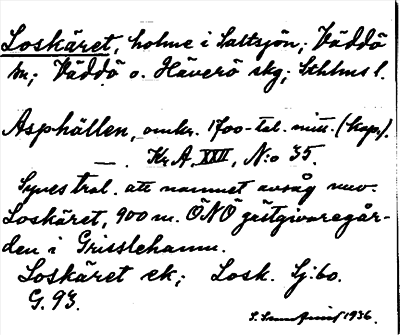 Loskäret, holme i Saltsjön; Väddö
sn; Väddö o. Häverö skg; Sthlms l.
Asphällen, omkr. 1700-tal. mitt. (kap.).
— . Kr. A. XXII, N:o 35.
Synes tral. att namnet avsåg nuv.
Loskäret, 900 m. ÖNÖ gästgivaregår-
den i Grisslehamn.
Loskäret ek; Losk. Sj:60.
G. 93.
1936.